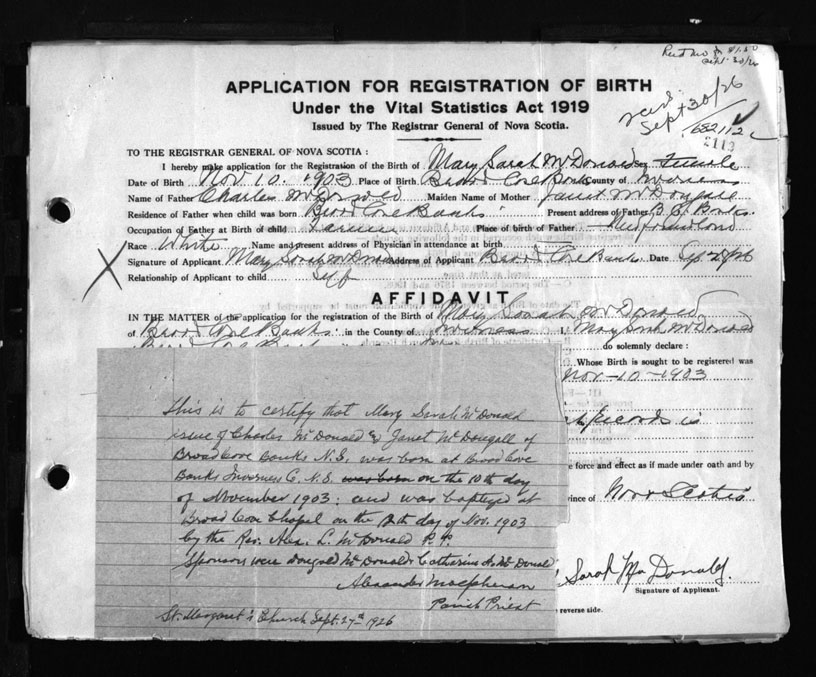 Sept 30/26
APPLICATION FOR REGISTRATION OF BIRTH
Under the Vital Statistics Act 1919
Issued by The Registrar General of Nova Scotia.
Sept 30/26
682112
2113
TO THE REGISTRAR GENERAL OF NOVA SCOTIA :
I hereby make application for the Registration of the Birth of Mary Sarah McDonald Sex Female
Date of Birth Nov 10. 1903 Place of Birth Broad Cove Banks County of Inverness
Name of Father Charles McDonald Maiden Name of Mother Janet McDougall
Residence of Father when child was born Broad Cove Banks Present address of Father B. C. Banks
Occupation of Father at Birth of child Farmer Place of birth of Father Newfoundland
Race White Name and present address of Physician in attendance at birth
Signature of Applicant Mary Sarah McDonald Address of Applicant Broad Cove Banks Date
Relationship of Applicant to child Self
AFFIDAVIT
IN THE MATTER of the application for the registration of the Birth of Mary Sarah McDonald
of Broad Cove Banks in the County of Inverness I, Mary Sarah McDonald
do solemnly declare :
Whose Birth is sought to be registered was
Nov-10-1903
records is
e force and effect as if made under oath and by
vince of Nova Scotia
Sarah MacDonald.
Signature of Applicant.
reverse side.
This is to certify that Mary Sarah McDonald
issue of Charles McDonald & Janet McDougall of
Broad Cove Banks N.S. was born at Broad Cove
Banks Inverness C. N.S. was born on the 10th day
of November 1903: and was baptized at
Broad Cove Chapel on the 12th day of Nov. 1903
by the Rev. Alex. L. McDonald P.P.
Sponsors were Dougald McDonald & Catharine A. McDonald
Alexander Macpherson
Parish Priest
St. Margaret's Church Sept. 27th 1926